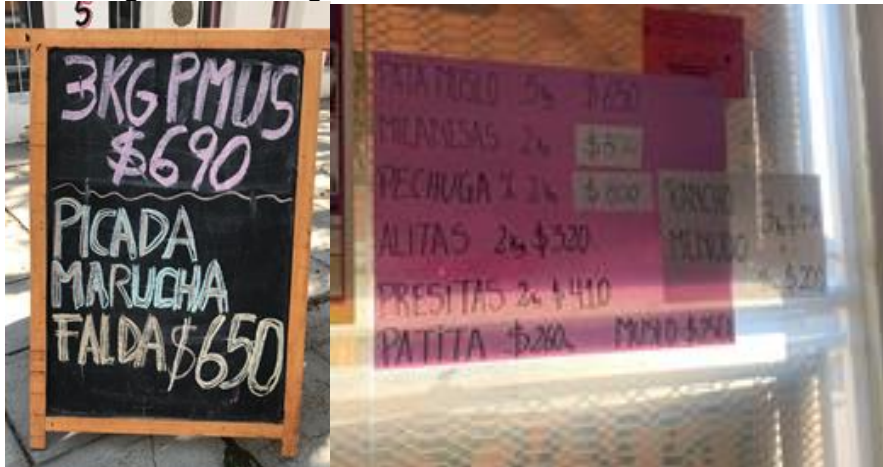 5
3KG PMUS
$690
PICADA
MARUCHA
FALDA $650
PATA MUSLO
MILANESAS 2k
PECHUGA 2k $800
ALITAS 2kg $320
PRESITAS 2k $410
PATITA $260
MENUDO
$200